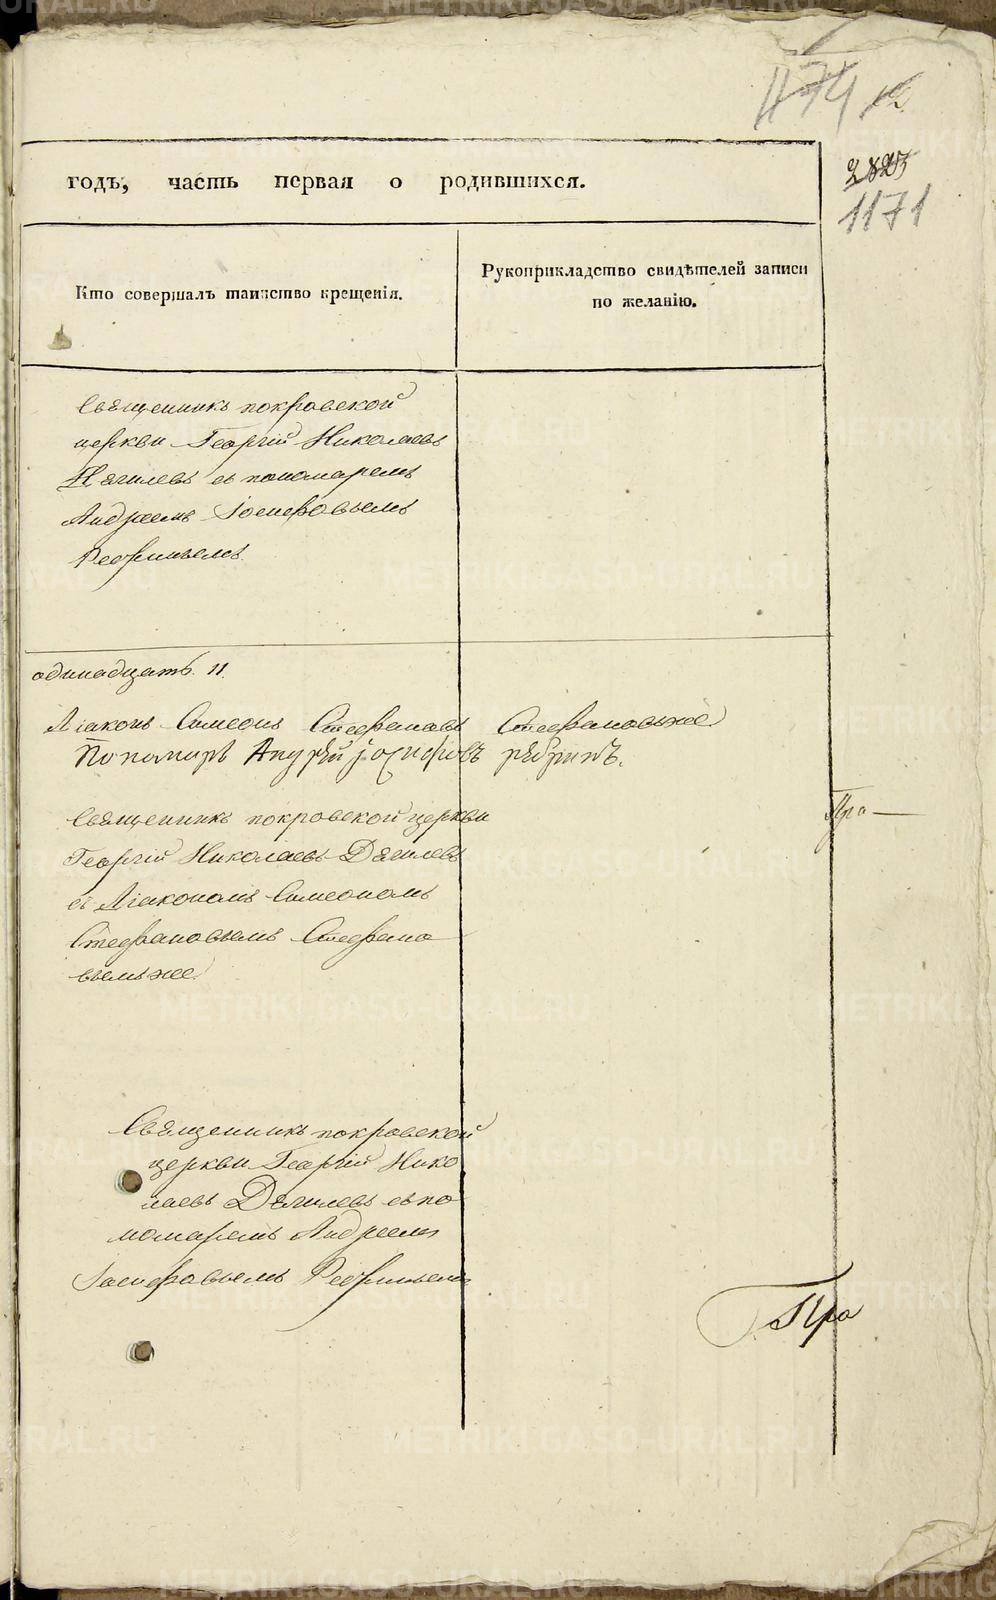 1174
1171
годъ, часть первая о родившихся.
Кто совершалъ таинство крещенія.
Рукоприкладство свидѣтелей записи
по желанію.
Священникъ покровской
церкви Георгій Николаевъ
Дягилевъ съ пономаремъ
Андреемъ Іосифовымъ
одинадцать 11.
Діаконъ Симеонъ Стефановъ Стефановъ же
Пономарь Андрей Іосифовъ
Священникъ покровской церкви
Георгій Николаевъ Дягилевъ
съ Діакономъ Симеономъ
Стефановымъ Стефано
вымъ же
Пра
Священникъ покровской
церкви Георгій Нико
лаевъ Дягилевъ съ по
номаремъ Андреемъ
Іосифовымъ
Пра
METRIKI.GASO-URAL.RU